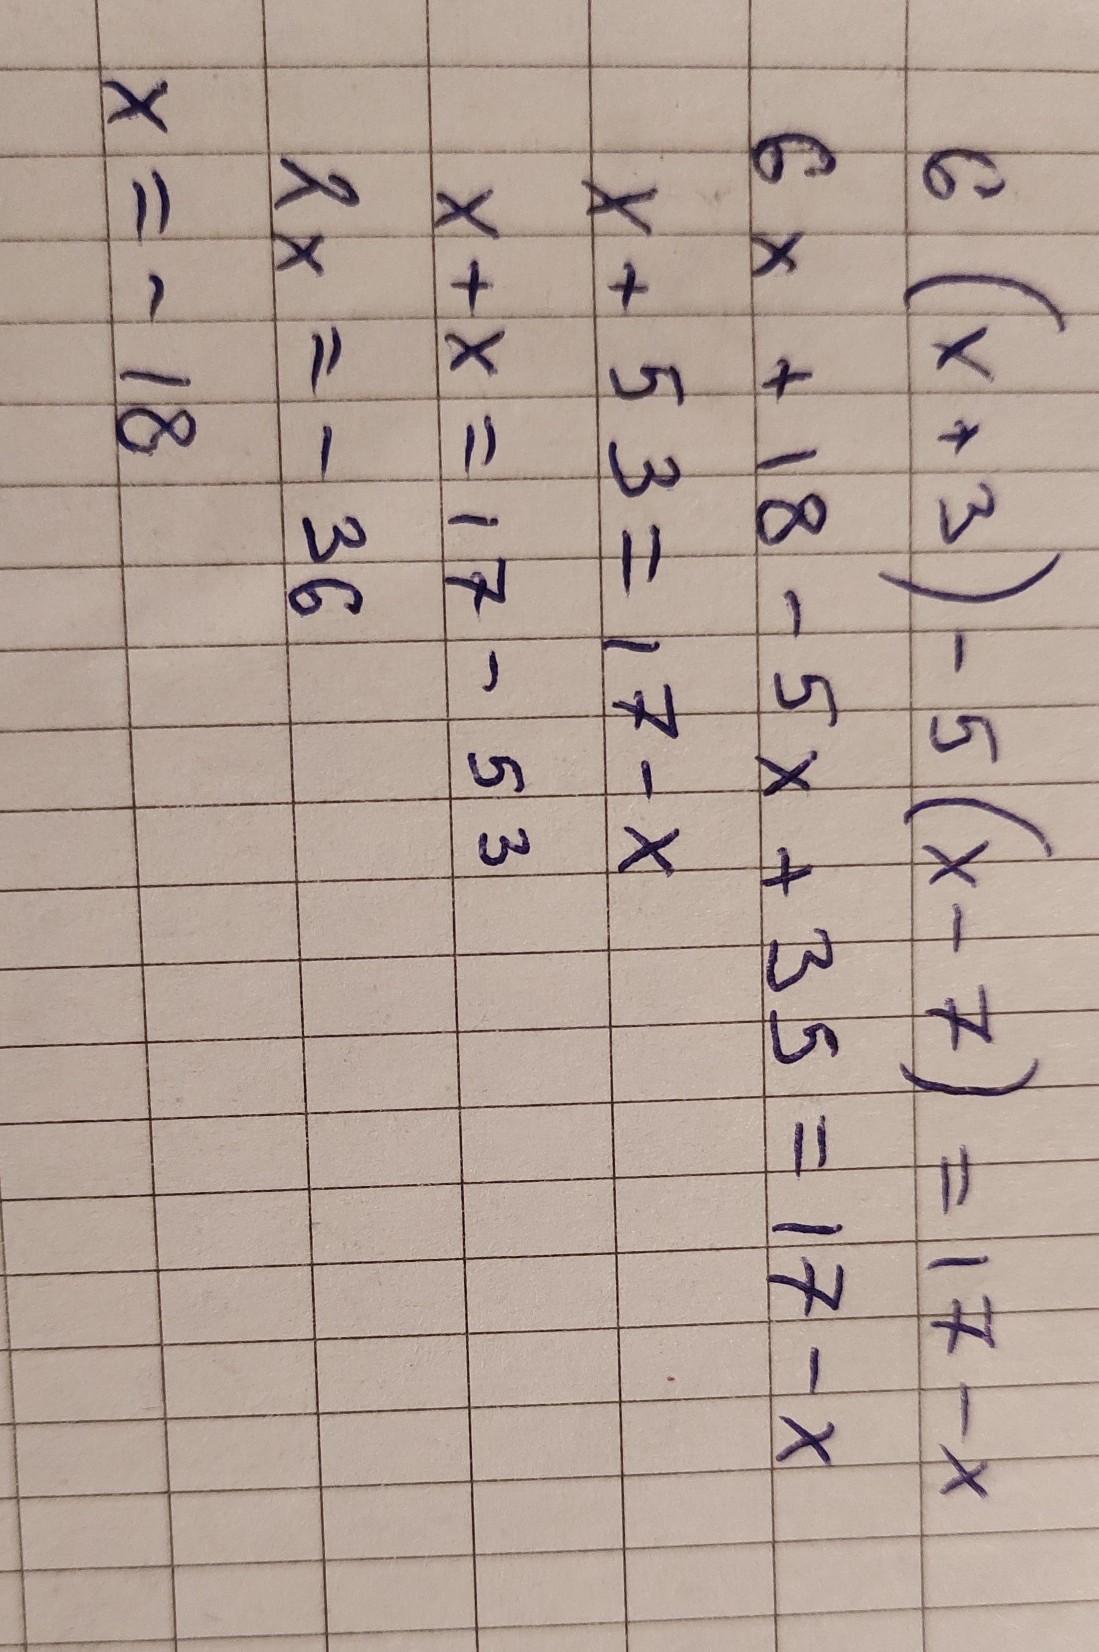 6(x+3)-5(x-7)=17-x
6x+18-5x+35=17-x
x+53=17-x
x+x=17-53
2x=-36
x=-18